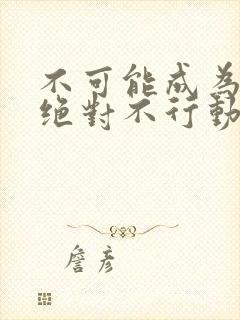 不可能成為
絕對不行動
詹彥